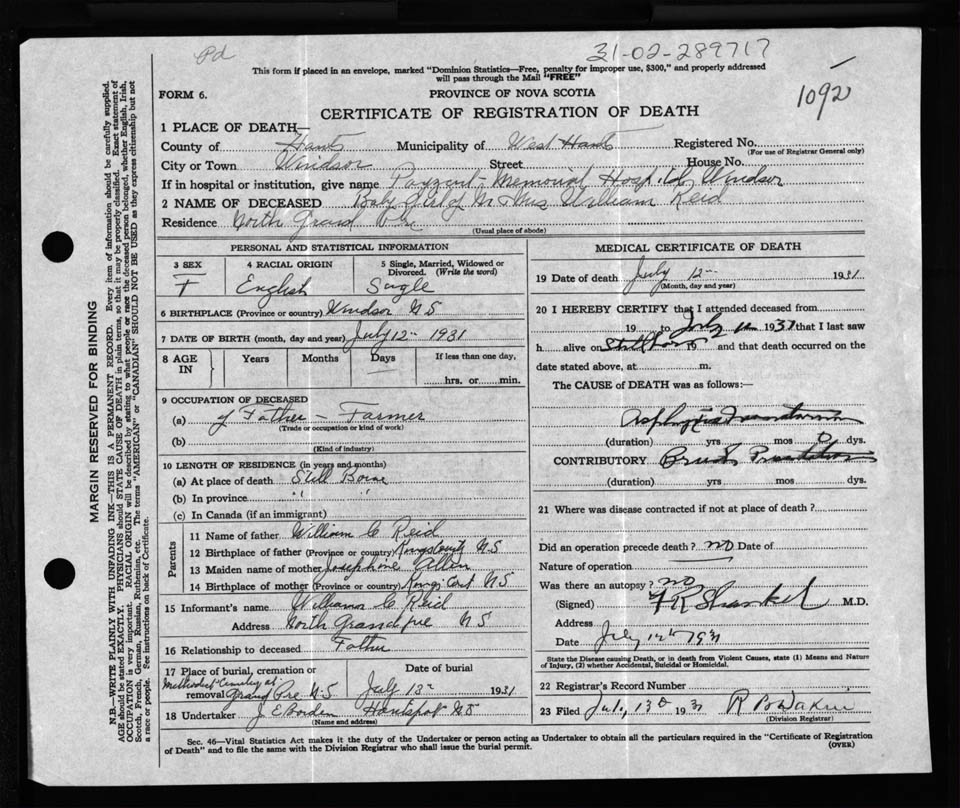 Pd
31-02-289717
This form if placed in an envelope, marked "Dominion Statistics—Free, penalty for improper use, $300," and properly addressed
will pass through the Mail "FREE"
1092
FORM 6.
PROVINCE OF NOVA SCOTIA
CERTIFICATE OF REGISTRATION OF DEATH
1 PLACE OF DEATH—
County of Hants Municipality of West Hants Registered No.
(For use of Registrar General only)
City or Town Windsor Street House No.
If in hospital or institution, give name Payzant Memorial Hospital, Windsor
2 NAME OF DECEASED Baby Girl of Mr & Mrs William Reid
Residence North Grand Pre
(Usual place of abode)
PERSONAL AND STATISTICAL INFORMATION
3 SEX 4 RACIAL ORIGIN 5 Single, Married, Widowed or Divorced. (Write the word)
F English Single
6 BIRTHPLACE (Province or country) Windsor N.S
7 DATE OF BIRTH (month, day and year) July 12 1931
8 AGE IN Years Months Days If less than one day,
hrs. or min.
9 OCCUPATION OF DECEASED
(a) of Father - Farmer
(Trade or occupation or kind of work)
(b)
(Kind of industry)
10 LENGTH OF RESIDENCE (in years and months)
(a) At place of death Still Born
(b) In province " "
(c) In Canada (if an immigrant)
Parents
11 Name of father William C Reid
12 Birthplace of father (Province or country) N.S
13 Maiden name of mother Josephine Allen
14 Birthplace of mother (Province or country) Kings Co N.S
15 Informant's name William C Reid
Address North Grandpre N S
16 Relationship to deceased Father
17 Place of burial, cremation or Date of burial
Methodist Cemetery at
removal Grand Pre N.S July 13 1931
18 Undertaker J. E Borden Hantsport N.S
(Name and address)
MEDICAL CERTIFICATE OF DEATH
19 Date of death July 12 1931
(Month, day and year)
20 I HEREBY CERTIFY that I attended deceased from
19 to July 12 1931 that I last saw
h alive on Stillborn 19 and that death occurred on the
date stated above, at m.
The CAUSE of DEATH was as follows:—
Asphyxia
(duration) yrs mos 0 dys.
CONTRIBUTORY Presentation
(duration) yrs mos dys.
21 Where was disease contracted if not at place of death?
Did an operation precede death? no Date of
Nature of operation
Was there an autopsy? no
(Signed) M.D.
Address
Date July 12th 1931
State the Disease causing Death, or in death from Violent Causes, state (1) Means and Nature
of Injury, (2) whether Accidental, Suicidal or Homicidal.
22 Registrar's Record Number
23 Filed July 13th 1931
(Division Registrar)
Sec. 46—Vital Statistics Act makes it the duty of the Undertaker or person acting as Undertaker to obtain all the particulars required in the "Certificate of Registration
of Death" and to file the same with the Division Registrar who shall issue the burial permit. (OVER)
MARGIN RESERVED FOR BINDING
N.B.—WRITE PLAINLY WITH UNFADING INK—THIS IS A PERMANENT RECORD. Every item of information should be carefully supplied.
AGE should be stated EXACTLY. PHYSICIANS should STATE CAUSE OF DEATH in plain terms, so that it may be properly classified. Exact statement of
OCCUPATION is very important. RACIAL ORIGIN will be described by stating to what people or race the deceased person belonged, whether English, Irish,
Scotch, French, German, Russian, Ruthenian, etc. The terms "AMERICAN" or "CANADIAN" SHOULD NOT BE USED as they express citizenship but not
a race or people. See instructions on back of Certificate.